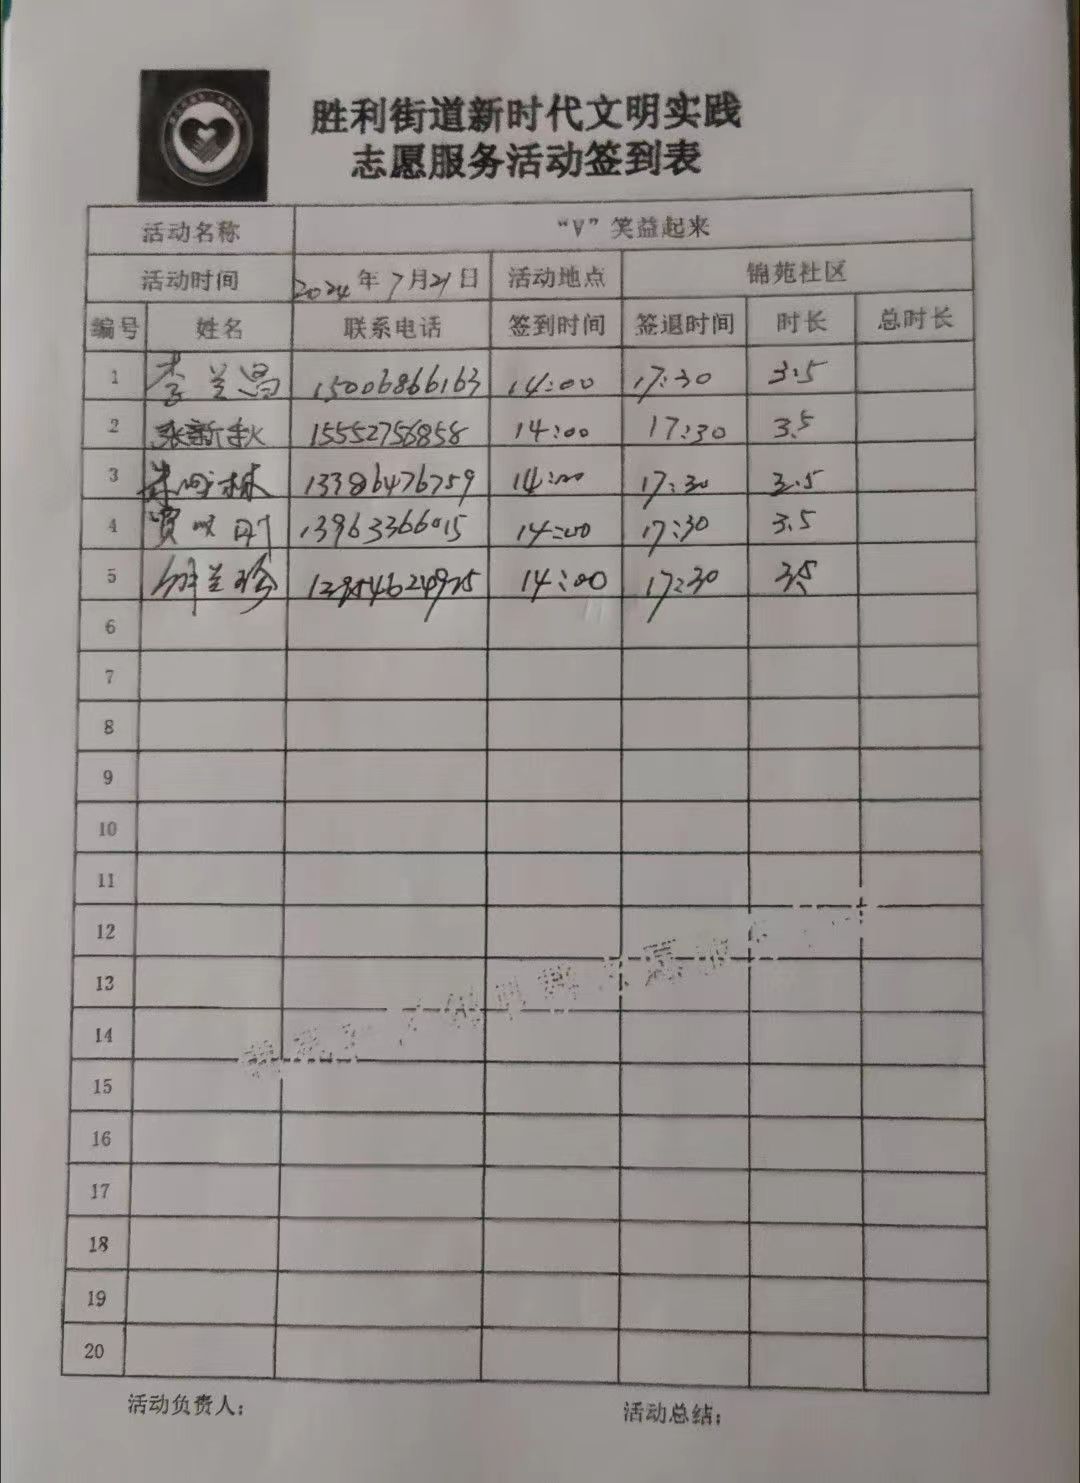 胜利街道新时代文明实践
志愿服务活动签到表
活动名称 “V”笑益起来
活动时间 2024年7月21日 活动地点 锦苑社区
编号 姓名 联系电话 签到时间 签退时间 时长 总时长
1 李兰昌 15006866163 14:00 17:30 3.5
2 张新秋 15552756858 14:00 17:30 3.5
3 13386476759 14:00 17:30 3.5
4 贾 刚 13963366015 14:00 17:30 3.5
5 兰珍 14:00 17:30 3.5
6
7
8
9
10
11
12
13
14
15
16
17
18
19
20
活动负责人: 活动总结: